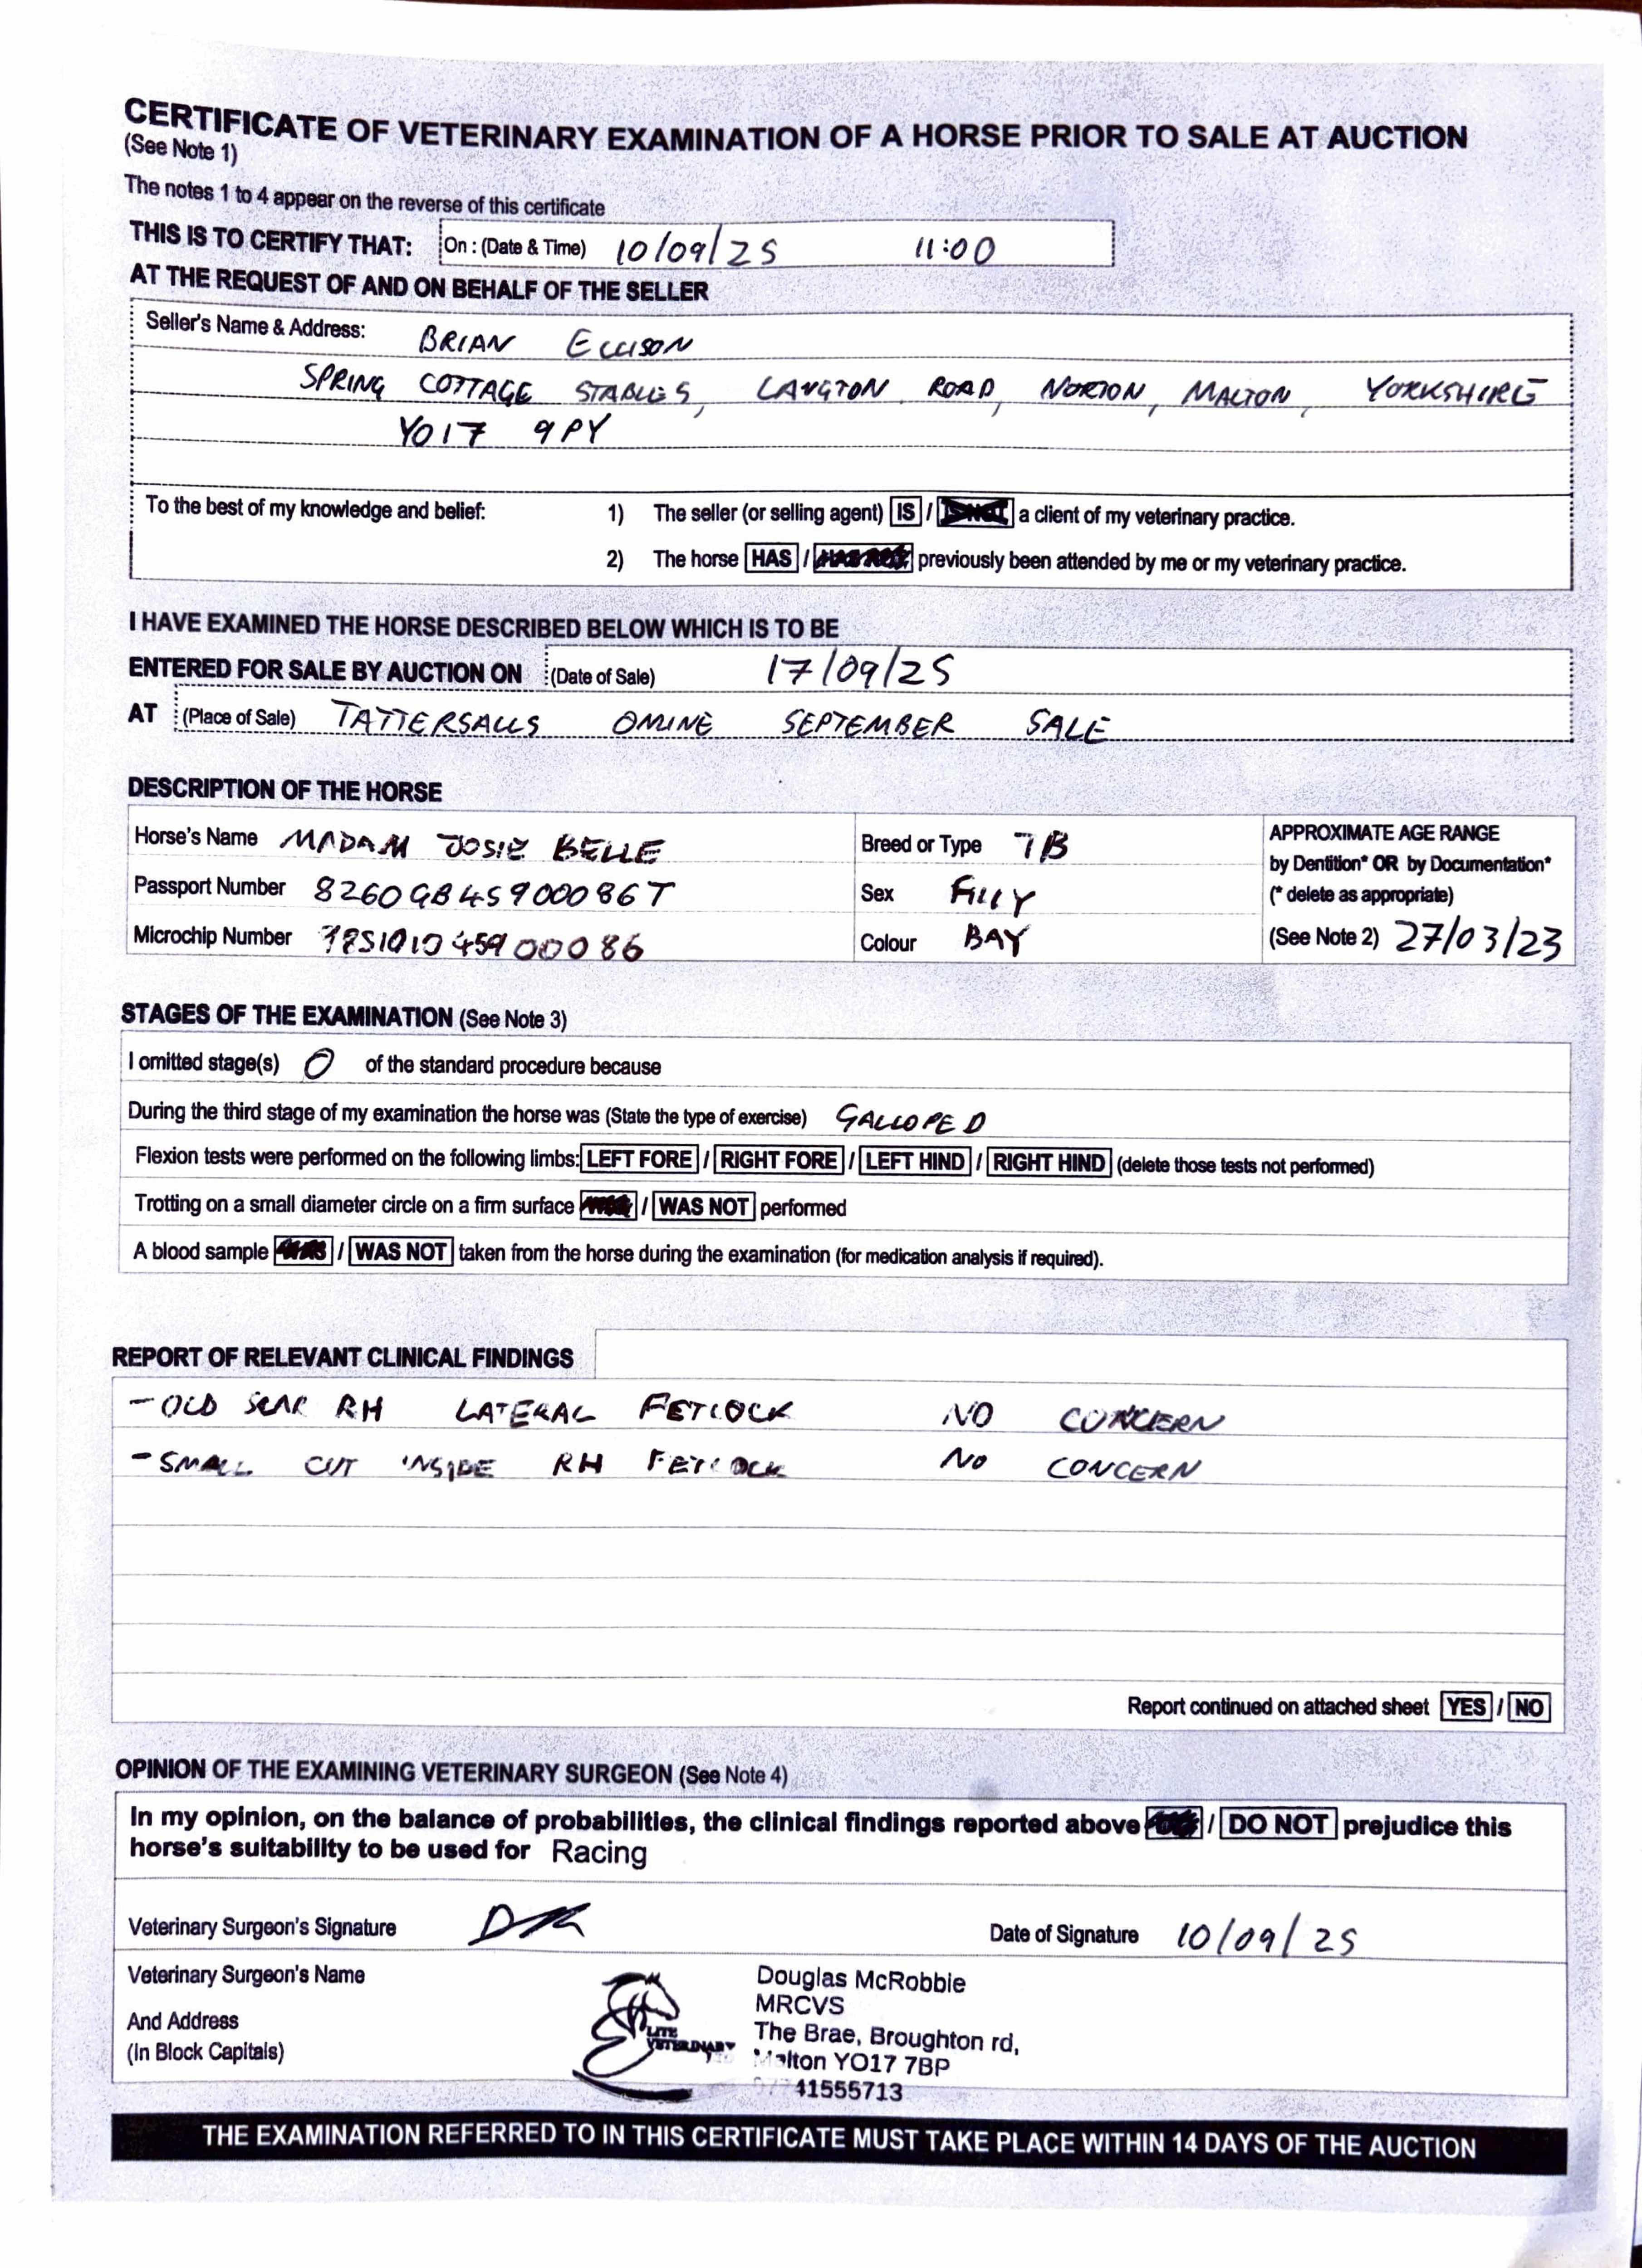 CERTIFICATE OF VETERINARY EXAMINATION OF A HORSE PRIOR TO SALE AT AUCTION
(See Note 1)
The notes 1 to 4 appear on the reverse of this certificate
THIS IS TO CERTIFY THAT: On : (Date & Time) 10/09/25 11:00
AT THE REQUEST OF AND ON BEHALF OF THE SELLER
Seller's Name & Address: BRIAN ELLISON
SPRING COTTAGE STABLES, LANGTON ROAD, NORTON, MALTON, YORKSHIRE
YO17 9PY
To the best of my knowledge and belief: 1) The seller (or selling agent) IS / a client of my veterinary practice.
2) The horse HAS / previously been attended by me or my veterinary practice.
I HAVE EXAMINED THE HORSE DESCRIBED BELOW WHICH IS TO BE
ENTERED FOR SALE BY AUCTION ON (Date of Sale) 17/09/25
AT (Place of Sale) TATTERSALLS SEPTEMBER SALE
DESCRIPTION OF THE HORSE
Horse's Name MADAM JOSIE BELLE Breed or Type TB APPROXIMATE AGE RANGE
by Dentition* OR by Documentation*
Passport Number 8260GB45900086T Sex FILLY (* delete as appropriate)
Microchip Number 985101045900086 Colour BAY (See Note 2) 27/03/23
STAGES OF THE EXAMINATION (See Note 3)
I omitted stage(s) 0 of the standard procedure because
During the third stage of my examination the horse was (State the type of exercise) GALLOPED
Flexion tests were performed on the following limbs: LEFT FORE / RIGHT FORE / LEFT HIND / RIGHT HIND (delete those tests not performed)
Trotting on a small diameter circle on a firm surface / WAS NOT performed
A blood sample / WAS NOT taken from the horse during the examination (for medication analysis if required).
REPORT OF RELEVANT CLINICAL FINDINGS
- OLD SCAR RH LATERAL FETLOCK NO CONCERN
- SMALL CUT INSIDE RH FETLOCK NO CONCERN
Report continued on attached sheet YES / NO
OPINION OF THE EXAMINING VETERINARY SURGEON (See Note 4)
In my opinion, on the balance of probabilities, the clinical findings reported above / DO NOT prejudice this
horse's suitability to be used for Racing
Veterinary Surgeon's Signature Date of Signature 10/09/25
Veterinary Surgeon's Name Douglas McRobbie
MRCVS
And Address The Brae, Broughton rd,
(In Block Capitals) LITE VETERINARY Malton YO17 7BP
41555713
THE EXAMINATION REFERRED TO IN THIS CERTIFICATE MUST TAKE PLACE WITHIN 14 DAYS OF THE AUCTION